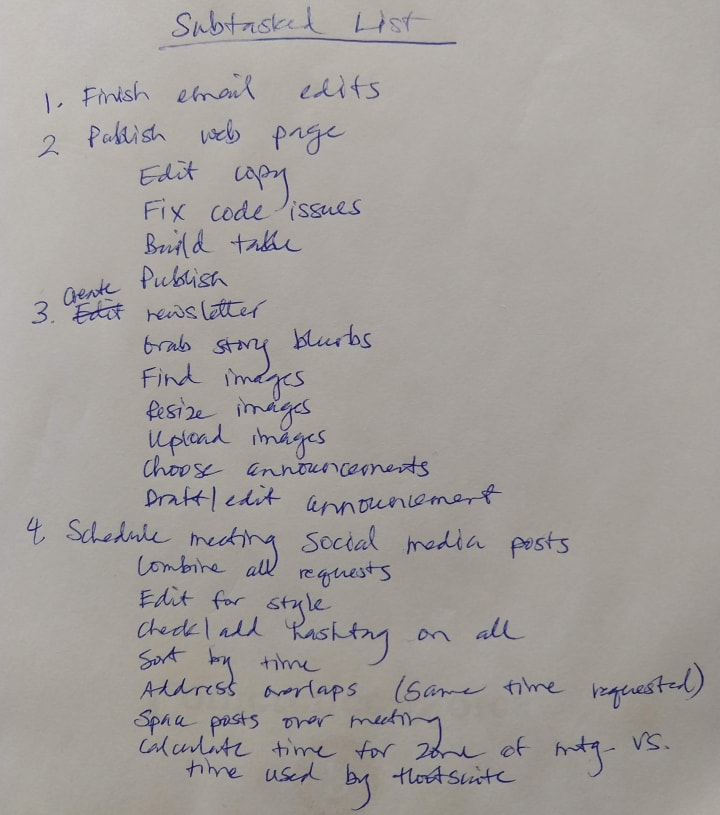 Subtasked List
1. Finish email edits
2 Publish web page
Edit copy
Fix code issues
Build table
Publish
3. Create newsletter
Grab story blurbs
Find images
Resize images
Upload images
Choose announcements
Draft/edit announcement
4 Schedule meeting social media posts
Combine all requests
Edit for style
Check/add hashtag on all
Sort by time
Address overlaps (same time requested)
Space posts over meeting
Calculate time for zone of mtg. vs.
time used by Hootsuite